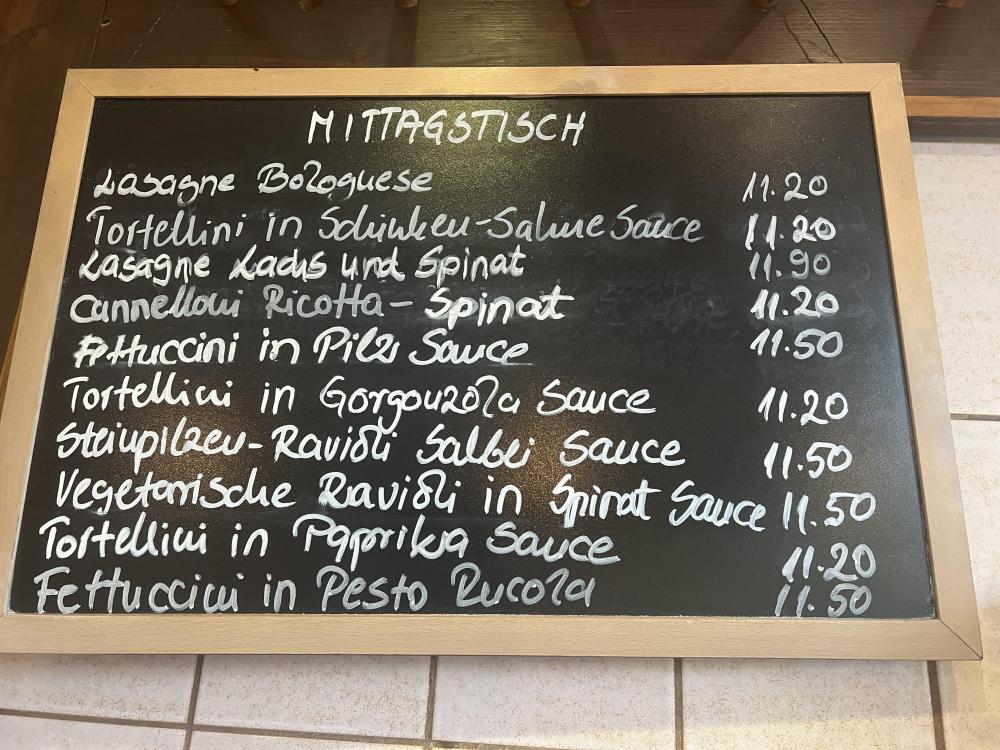 MITTAGSTISCH
Lasagne Bolognese 11.20
Tortellini in Schinken-Sahne Sauce 11.20
Lasagne Lachs und Spinat 11.90
Cannelloni Ricotta-Spinat 11.20
Fettuccini in Pilz Sauce 11.50
Tortellini in Gorgonzola Sauce 11.20
Steinpilzen-Ravioli Salbei Sauce 11.50
Vegetarische Ravioli in Spinat Sauce 11.50
Tortellini in Paprika Sauce 11.20
Fettuccini in Pesto Rucola 11.50